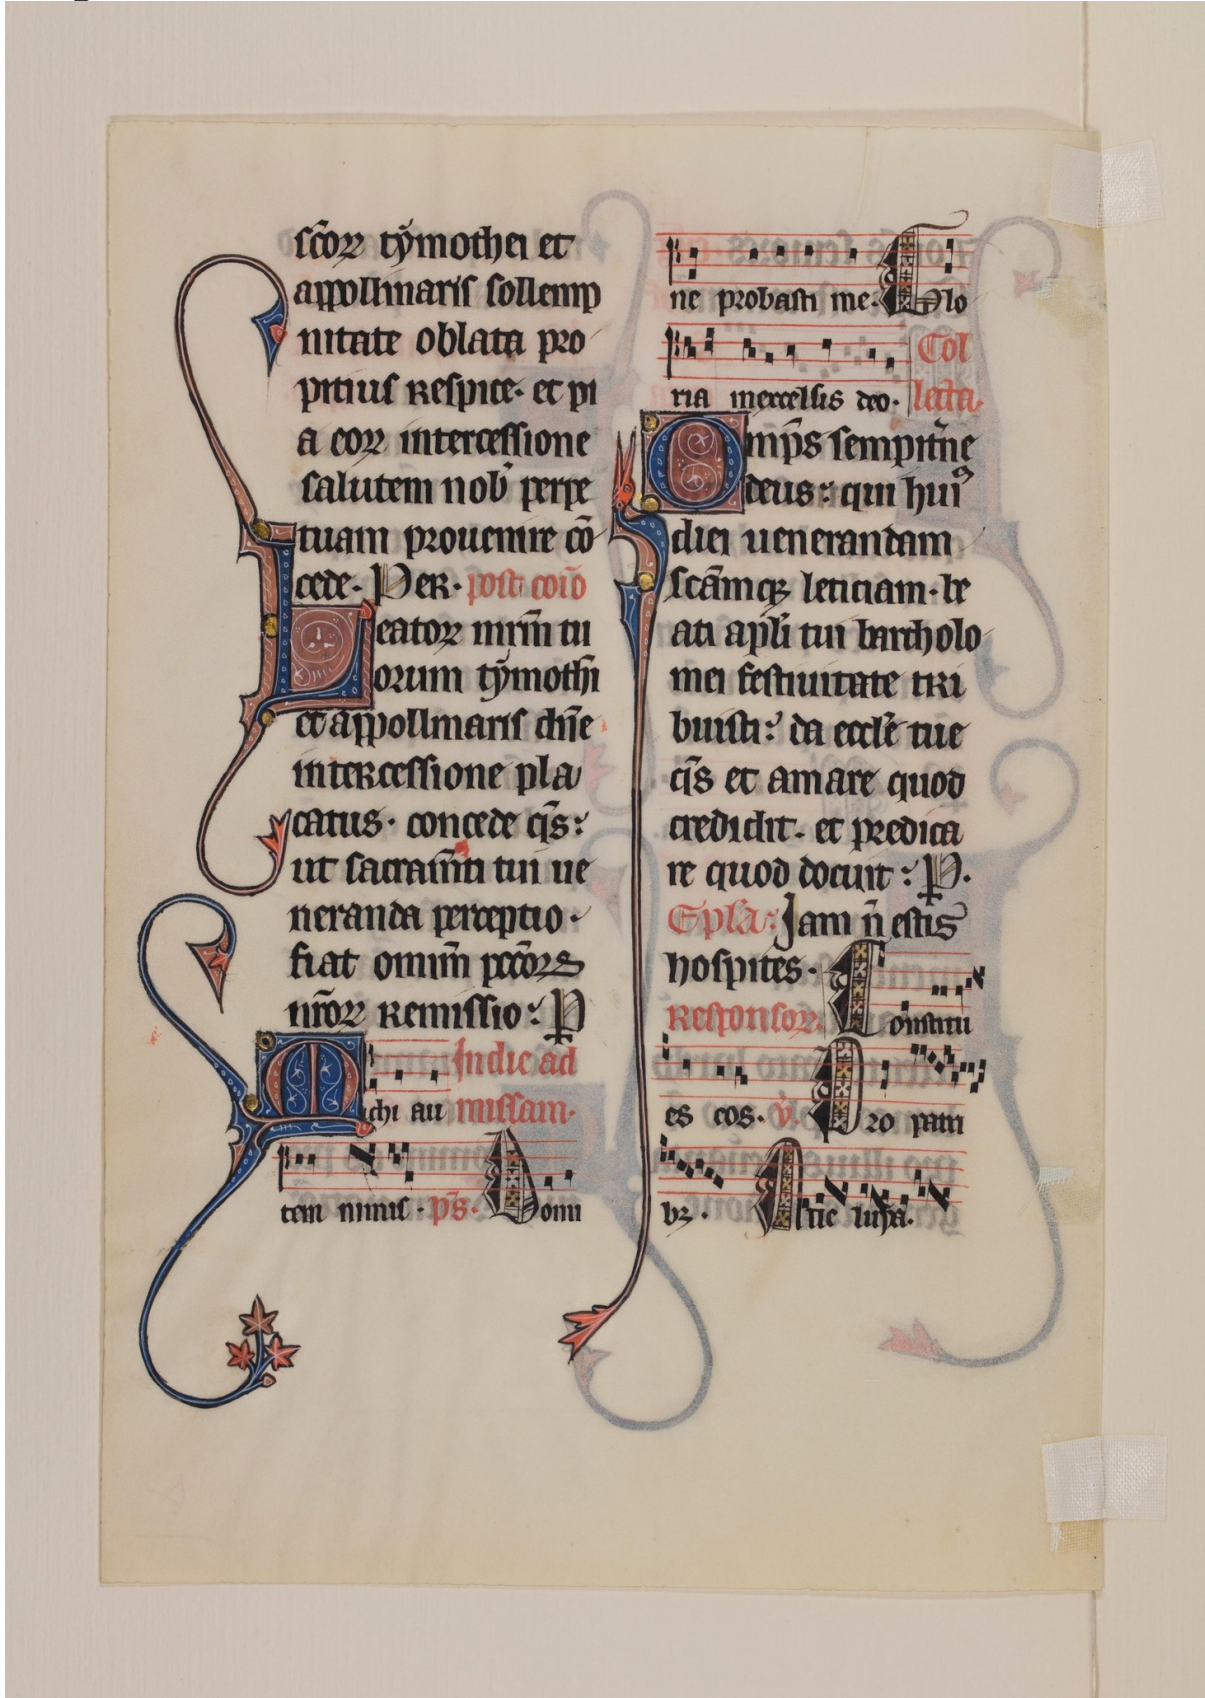 sc̄oꝝ tẏmothei et
appollinaris sollemp
nitate oblata pro
pitius respice. et pi
a eoꝝ intercessione
salutem nob̾ perpe
tuam prouenire cō
cede. Per. post coīo
Beatoꝝ mr̄m tu
orum tẏmothi
et appollinaris dn̄e
intercessione pla
catus. concede qs̄:
ut sacram̄ti tui ue
neranda perceptio.
fiat omīm pccōꝝ
nr̄oꝝ remissio: P
In die ad
Michi au missam.
tem nimis. ps̄. Domi
ne probasti me. Glo
ria inexcelsis deo. Col
lecta.
Omp̄s sempit̄ne
deus: qui huiꝰ
diei uenerandam
sc̄amqꝫ leticiam. be
ati apl̄i tui bartholo
mei festiuitate tri
buisti: da eccl̄e tue
qs̄ et amare quod
credidit. et predica
re quod docuit: P.
Ep̄la: Iam n̄ estis
hospites.
Responsoꝝ. Constitu
es eos. v̇. Pro patri
bꝫ. Alle luya.